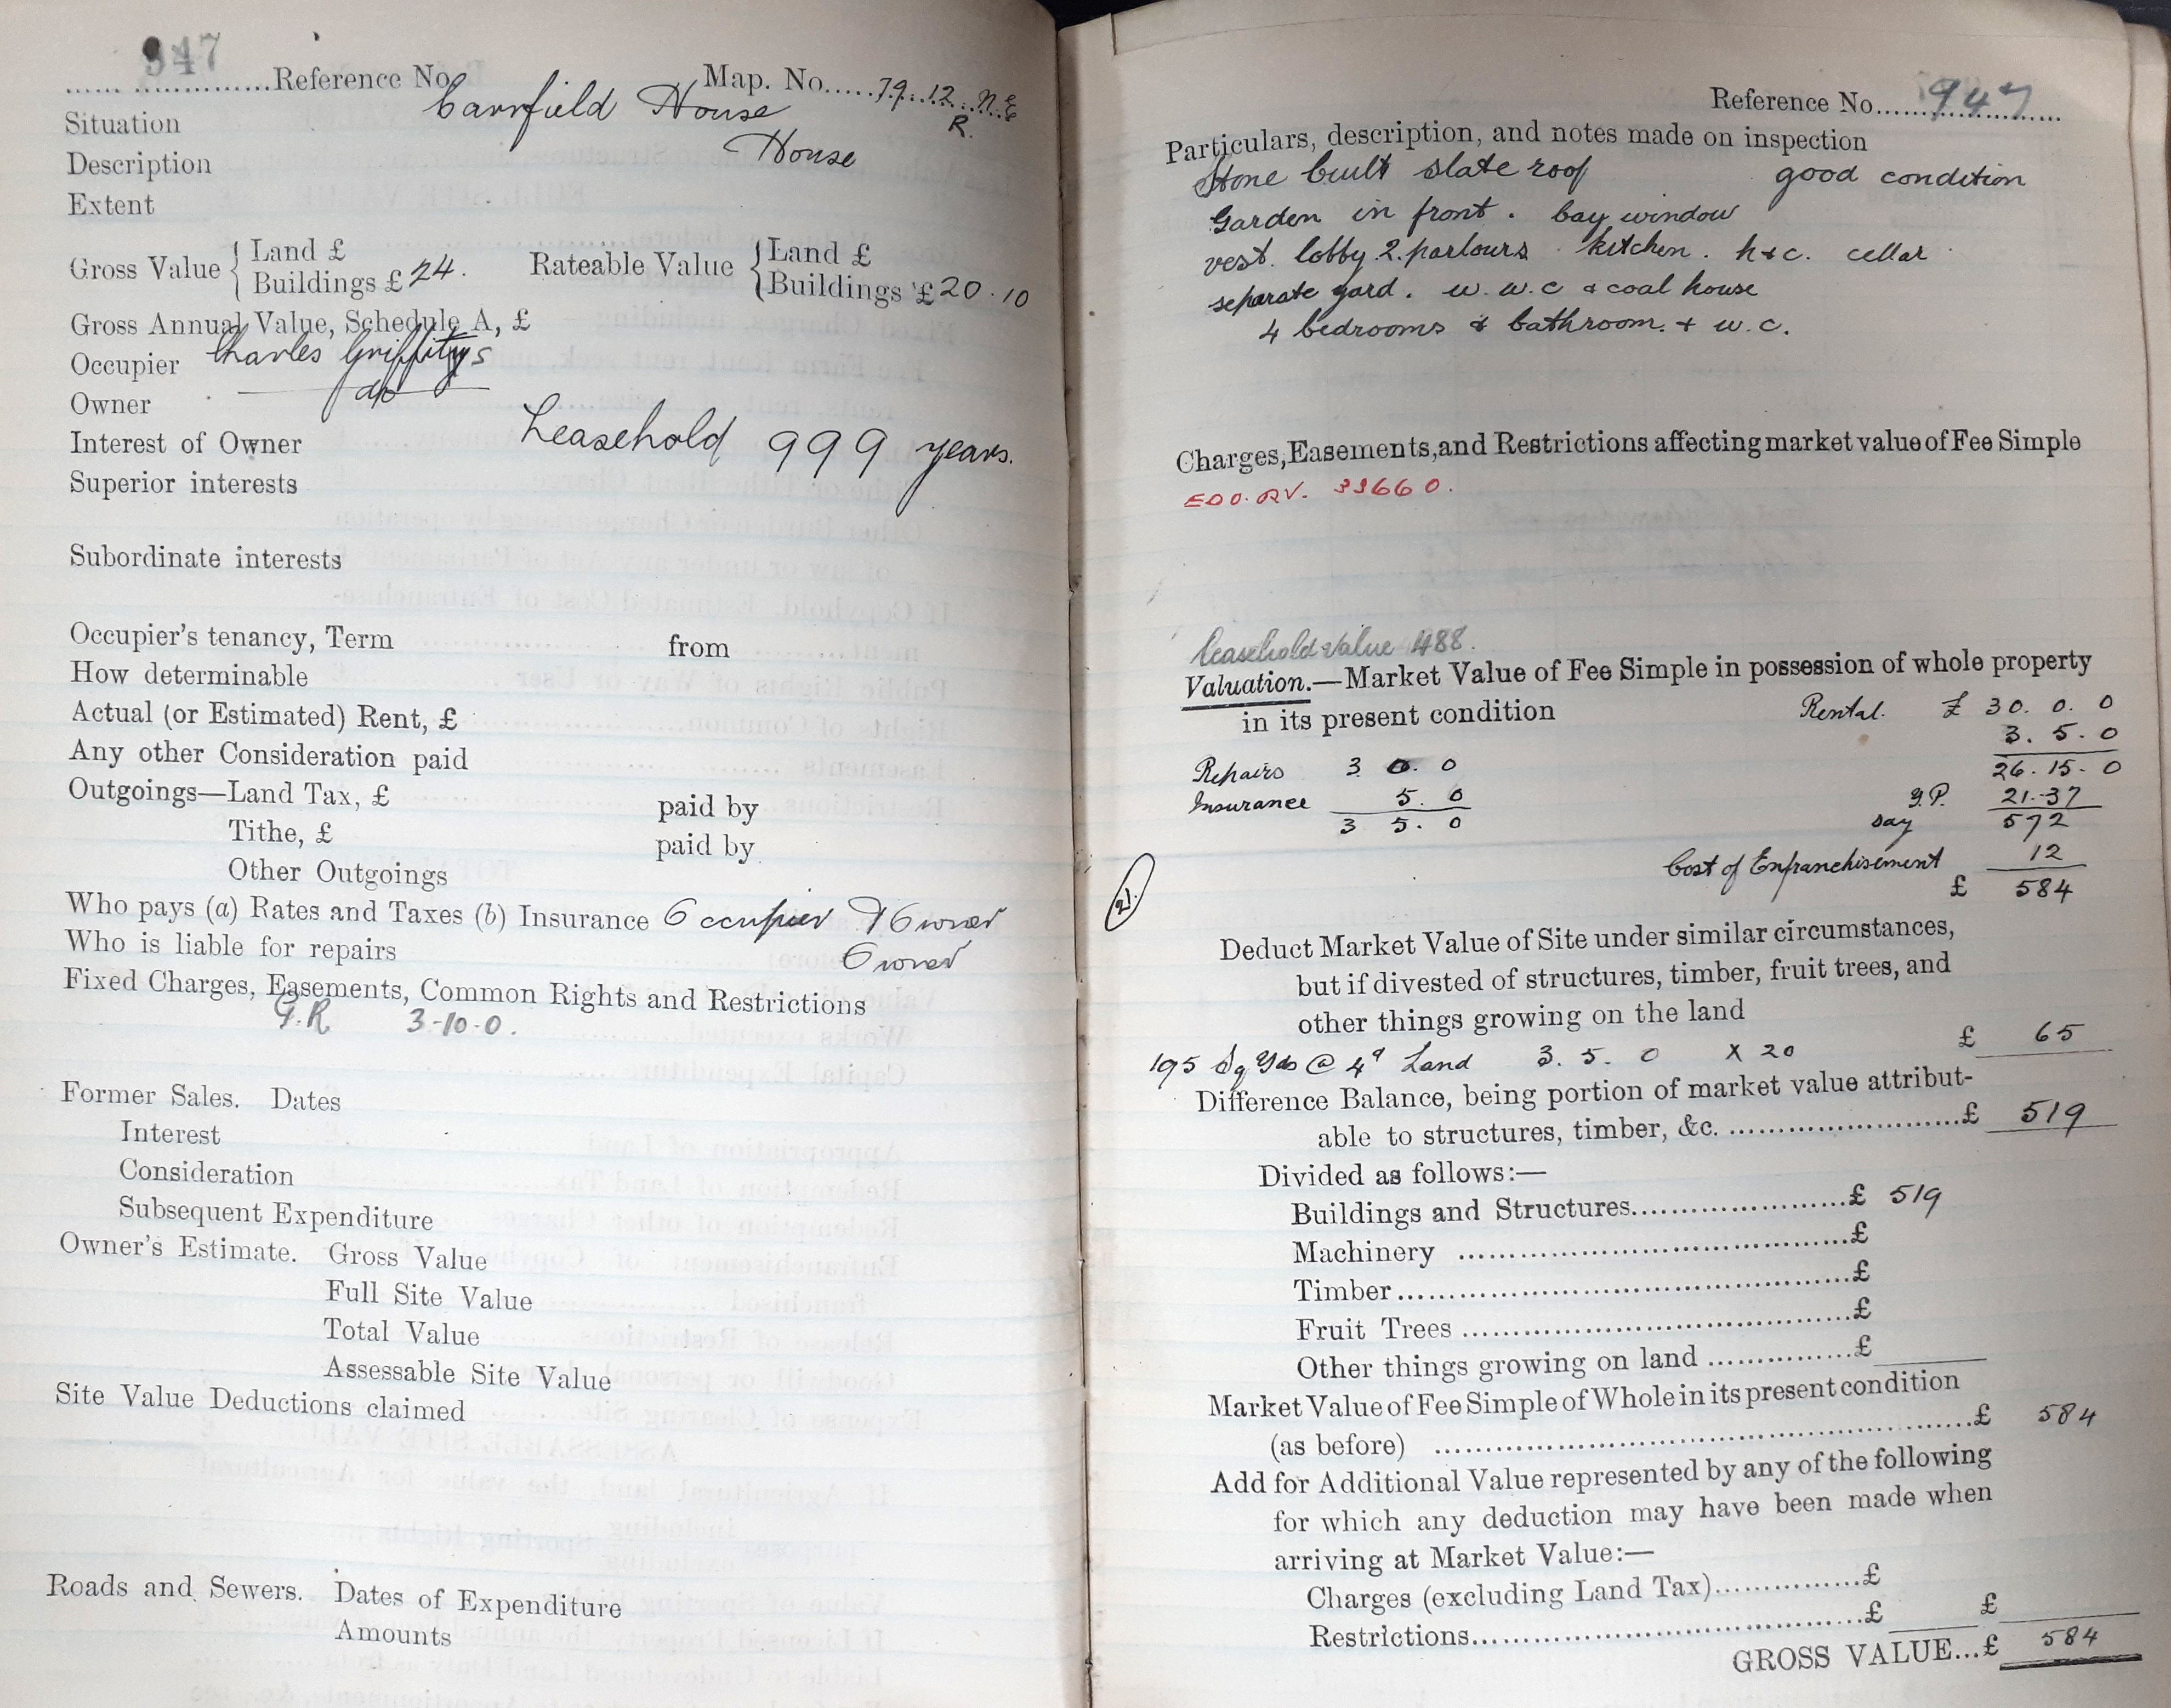 947
Reference No. Map. No. 79.12 N.E
R.
Situation Carrfield House
Description House
Extent
Gross Value { Land £
Buildings £ 24. Rateable Value { Land £
Buildings £ 20.10
Gross Annual Value, Schedule A, £
Occupier Charles Griffiths
Owner do
Interest of Owner Leasehold 999 years.
Superior interests
Subordinate interests
Occupier's tenancy, Term from
How determinable
Actual (or Estimated) Rent, £
Any other Consideration paid
Outgoings—Land Tax, £ paid by
Tithe, £ paid by
Other Outgoings
Who pays (a) Rates and Taxes (b) Insurance Occupier Owner
Who is liable for repairs Owner
Fixed Charges, Easements, Common Rights and Restrictions
G.R 3-10-0.
Former Sales. Dates
Interest
Consideration
Subsequent Expenditure
Owner's Estimate. Gross Value
Full Site Value
Total Value
Assessable Site Value
Site Value Deductions claimed
Roads and Sewers. Dates of Expenditure
Amounts
Reference No. 947
Particulars, description, and notes made on inspection
Stone built slate roof good condition
Garden in front. bay window
vest. lobby 2. parlours. kitchen. h+c. cellar
separate yard. w.w.c & coal house
4 bedrooms & bathroom. + w.c.
Charges, Easements, and Restrictions affecting market value of Fee Simple
33660.
Leasehold Value 488.
Valuation.—Market Value of Fee Simple in possession of whole property
in its present condition Rental. £ 30. 0. 0
3. 5. 0
Repairs 3 0. 0 26. 15. 0
Insurance 5. 0 Y.P. 21.37
3 5. 0 say 572
Cost of Enfranchisement 12
21. £ 584
Deduct Market Value of Site under similar circumstances,
but if divested of structures, timber, fruit trees, and
other things growing on the land
195 Sq Yds @ 4d Land 3. 5. 0 X 20 £ 65
Difference Balance, being portion of market value attribut-
able to structures, timber, &c. £ 519
Divided as follows:—
Buildings and Structures £ 519
Machinery £
Timber £
Fruit Trees £
Other things growing on land £
Market Value of Fee Simple of Whole in its present condition
(as before) £ 584
Add for Additional Value represented by any of the following
for which any deduction may have been made when
arriving at Market Value:—
Charges (excluding Land Tax) £
Restrictions £ £
GROSS VALUE...£ 584